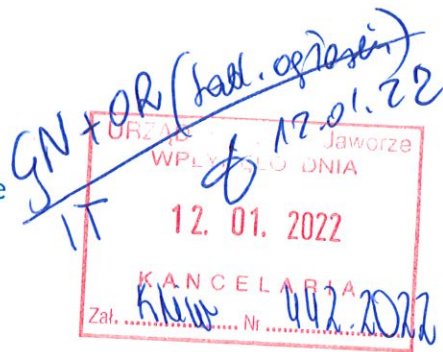 GN + OR (tabl. ogłoszeń)
IT
12.01.22
e
URZĄD Jaworze
WPŁYNĘŁO DNIA
12. 01. 2022
KANCELARIA
Zał. ........ Nr 442.2022